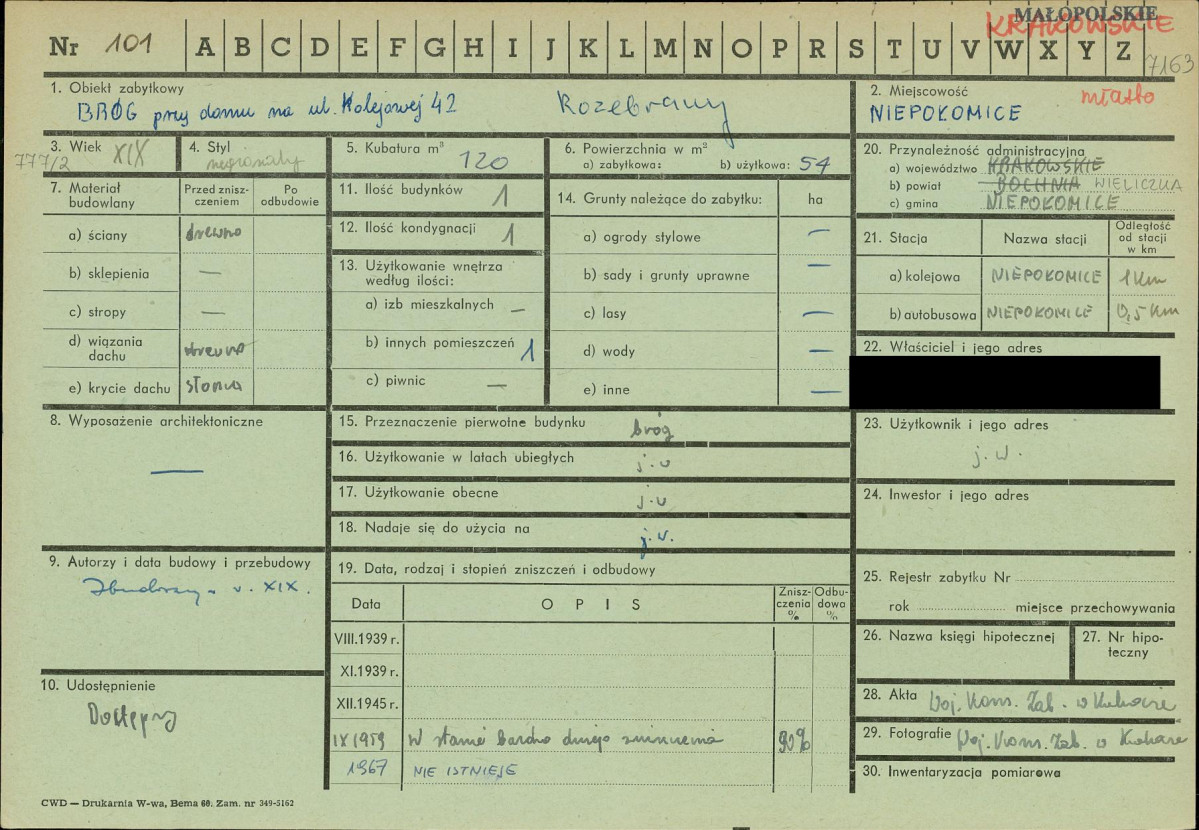 MAŁOPOLSKIE
KRAKOWSKIE
Nr 101 A B C D E F G H I J K L M N O P R S T U V W X Y Z
7163
1. Obiekt zabytkowy
BRÓG przy domu na ul. Kolejowej 42 Rozebrany
2. Miejscowość miasto
NIEPOŁOMICE
3. Wiek XIX
777/2
4. Styl
5. Kubatura m³ 120
6. Powierzchnia w m²
a) zabytkowa: b) użytkowa: 54
20. Przynależność administracyjna
a) województwo KRAKOWSKIE
b) powiat BOCHNIA WIELICZKA
c) gmina NIEPOŁOMICE
7. Materiał budowlany
Przed zniszczeniem
Po odbudowie
a) ściany drewno
b) sklepienia —
c) stropy —
d) wiązania dachu drewno
e) krycie dachu słoma
11. Ilość budynków 1
12. Ilość kondygnacji 1
13. Użytkowanie wnętrza według ilości:
a) izb mieszkalnych —
b) innych pomieszczeń 1
c) piwnic —
14. Grunty należące do zabytku: ha
a) ogrody stylowe —
b) sady i grunty uprawne —
c) lasy —
d) wody —
e) inne —
21. Stacja Nazwa stacji Odległość od stacji w km
a) kolejowa NIEPOŁOMICE 1 km
b) autobusowa NIEPOŁOMICE 0,5 km
22. Właściciel i jego adres
8. Wyposażenie architektoniczne
—
15. Przeznaczenie pierwotne budynku bróg
16. Użytkowanie w latach ubiegłych j.w
17. Użytkowanie obecne j.w
18. Nadaje się do użycia na j.w.
23. Użytkownik i jego adres
j.w.
24. Inwestor i jego adres
9. Autorzy i data budowy i przebudowy
w. XIX.
19. Data, rodzaj i stopień zniszczeń i odbudowy
Data OPIS Zniszczenia % Odbudowa %
VIII.1939 r.
XI.1939 r.
XII.1945 r.
IX 1959 W stanie bardzo dużego zniszczenia 90%
1967 NIE ISTNIEJE
25. Rejestr zabytku Nr
rok miejsce przechowywania
26. Nazwa księgi hipotecznej
27. Nr hipoteczny
10. Udostępnienie
Dostępny
28. Akta Woj. Kons. Zab. w Krakowie
29. Fotografie Woj. Kons. Zab. w Krakowie
30. Inwentaryzacja pomiarowa
CWD — Drukarnia W-wa, Bema 60. Zam. nr 349-5162